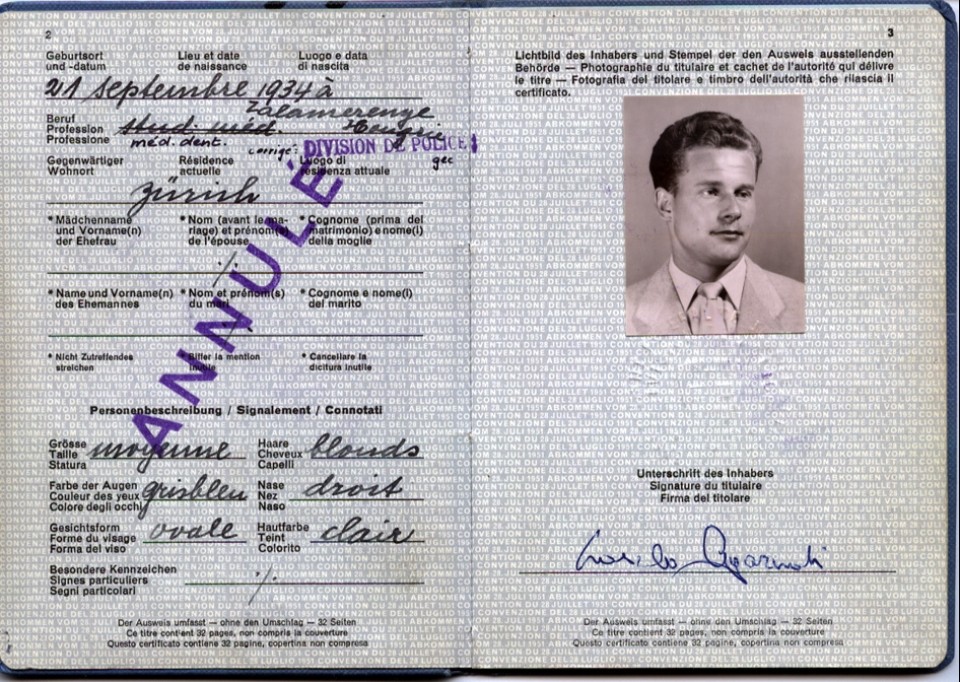 2
Geburtsort Lieu et date Luogo e data
und -datum de naissance di nascita
21 Septembre 1934 à
Zalamerenye
Beruf
Profession stud. méd. Hongrie
Professione méd. dent.
corrigé: DIVISION DE POLICE
Gegenwärtiger Résidence Luogo di
Wohnort actuelle residenza attuale
Zürich
* Mädchenname * Nom (avant le ma- * Cognome (prima del
und Vorname(n) riage) et prénom(s) matrimonio) e nome(i)
der Ehefrau de l'épouse della moglie
./.
* Name und Vorname(n) * Nom et prénom(s) * Cognome e nome(i)
des Ehemannes du mari del marito
* Nicht Zutreffendes * Biffer la mention * Cancellare la
streichen inutile dicitura inutile
ANNULÉ
Personenbeschreibung / Signalement / Connotati
Grösse Haare
Taille moyenne Cheveux blonds
Statura Capelli
Farbe der Augen Nase
Couleur des yeux grisbleu Nez droit
Colore degli occhi Naso
Gesichtsform Hautfarbe
Forme du visage ovale Teint clair
Forma del viso Colorito
Besondere Kennzeichen
Signes particuliers ./.
Segni particolari
Der Ausweis umfasst — ohne den Umschlag — 32 Seiten
Ce titre contient 32 pages, non compris la couverture
Questo certificato contiene 32 pagine, copertina non compresa
3
Lichtbild des Inhabers und Stempel der den Ausweis ausstellenden
Behörde — Photographie du titulaire et cachet de l'autorité qui délivre
le titre — Fotografia del titolare e timbro dell'autorità che rilascia il
certificato.
Unterschrift des Inhabers
Signature du titulaire
Firma del titolare
Der Ausweis umfasst — ohne den Umschlag — 32 Seiten
Ce titre contient 32 pages, non compris la couverture
Questo certificato contiene 32 pagine, copertina non compresa